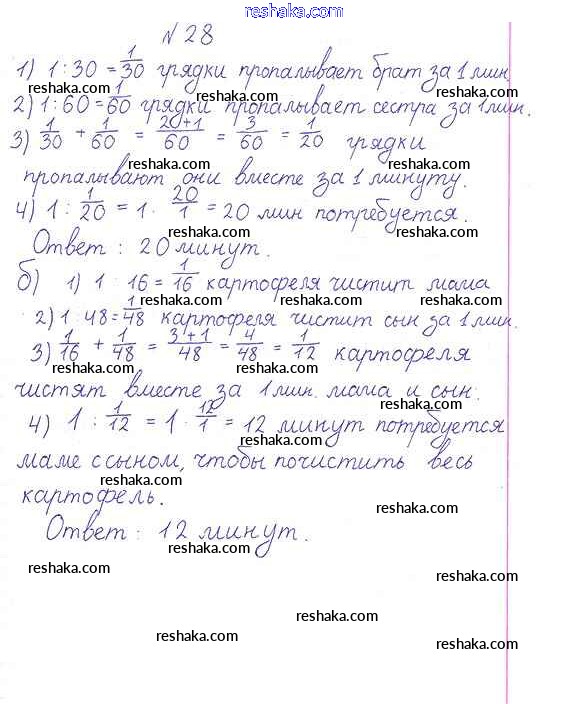 reshaka.com
№ 28
1) 1 : 30 = 1/30 грядки пропалывает брат за 1 мин
reshaka.com reshaka.com
2) 1 : 60 = 1/60 грядки пропалывает сестра за 1 мин.
reshaka.com reshaka.com
3) 1/30 + 1/60 = 20+1/60 = 3/60 = 1/20 грядки
reshaka.com reshaka.com
пропалывают они вместе за 1 минуту.
4) 1 : 1/20 = 1 · 20/1 = 20 мин потребуется.
reshaka.com reshaka.com
Ответ : 20 минут.
reshaka.com
б) 1) 1 16 = 1/16 картофеля чистит мама
reshaka.com reshaka.com
2) 1 : 48 = 1/48 картофеля чистит сын за 1 мин.
reshaka.com reshaka.com
3) 1/16 + 1/48 = 3+1/48 = 4/48 = 1/12 картофеля
чистят вместе за 1 мин. мама и сын.
reshaka.com
4) 1 : 1/12 = 1 · 12/1 = 12 минут потребуется
reshaka.com
маме с сыном, чтобы почистить весь
reshaka.com
картофель.
reshaka.com
Ответ : 12 минут.
reshaka.com
reshaka.com
reshaka.com
reshaka.com
reshaka.com
reshaka.com